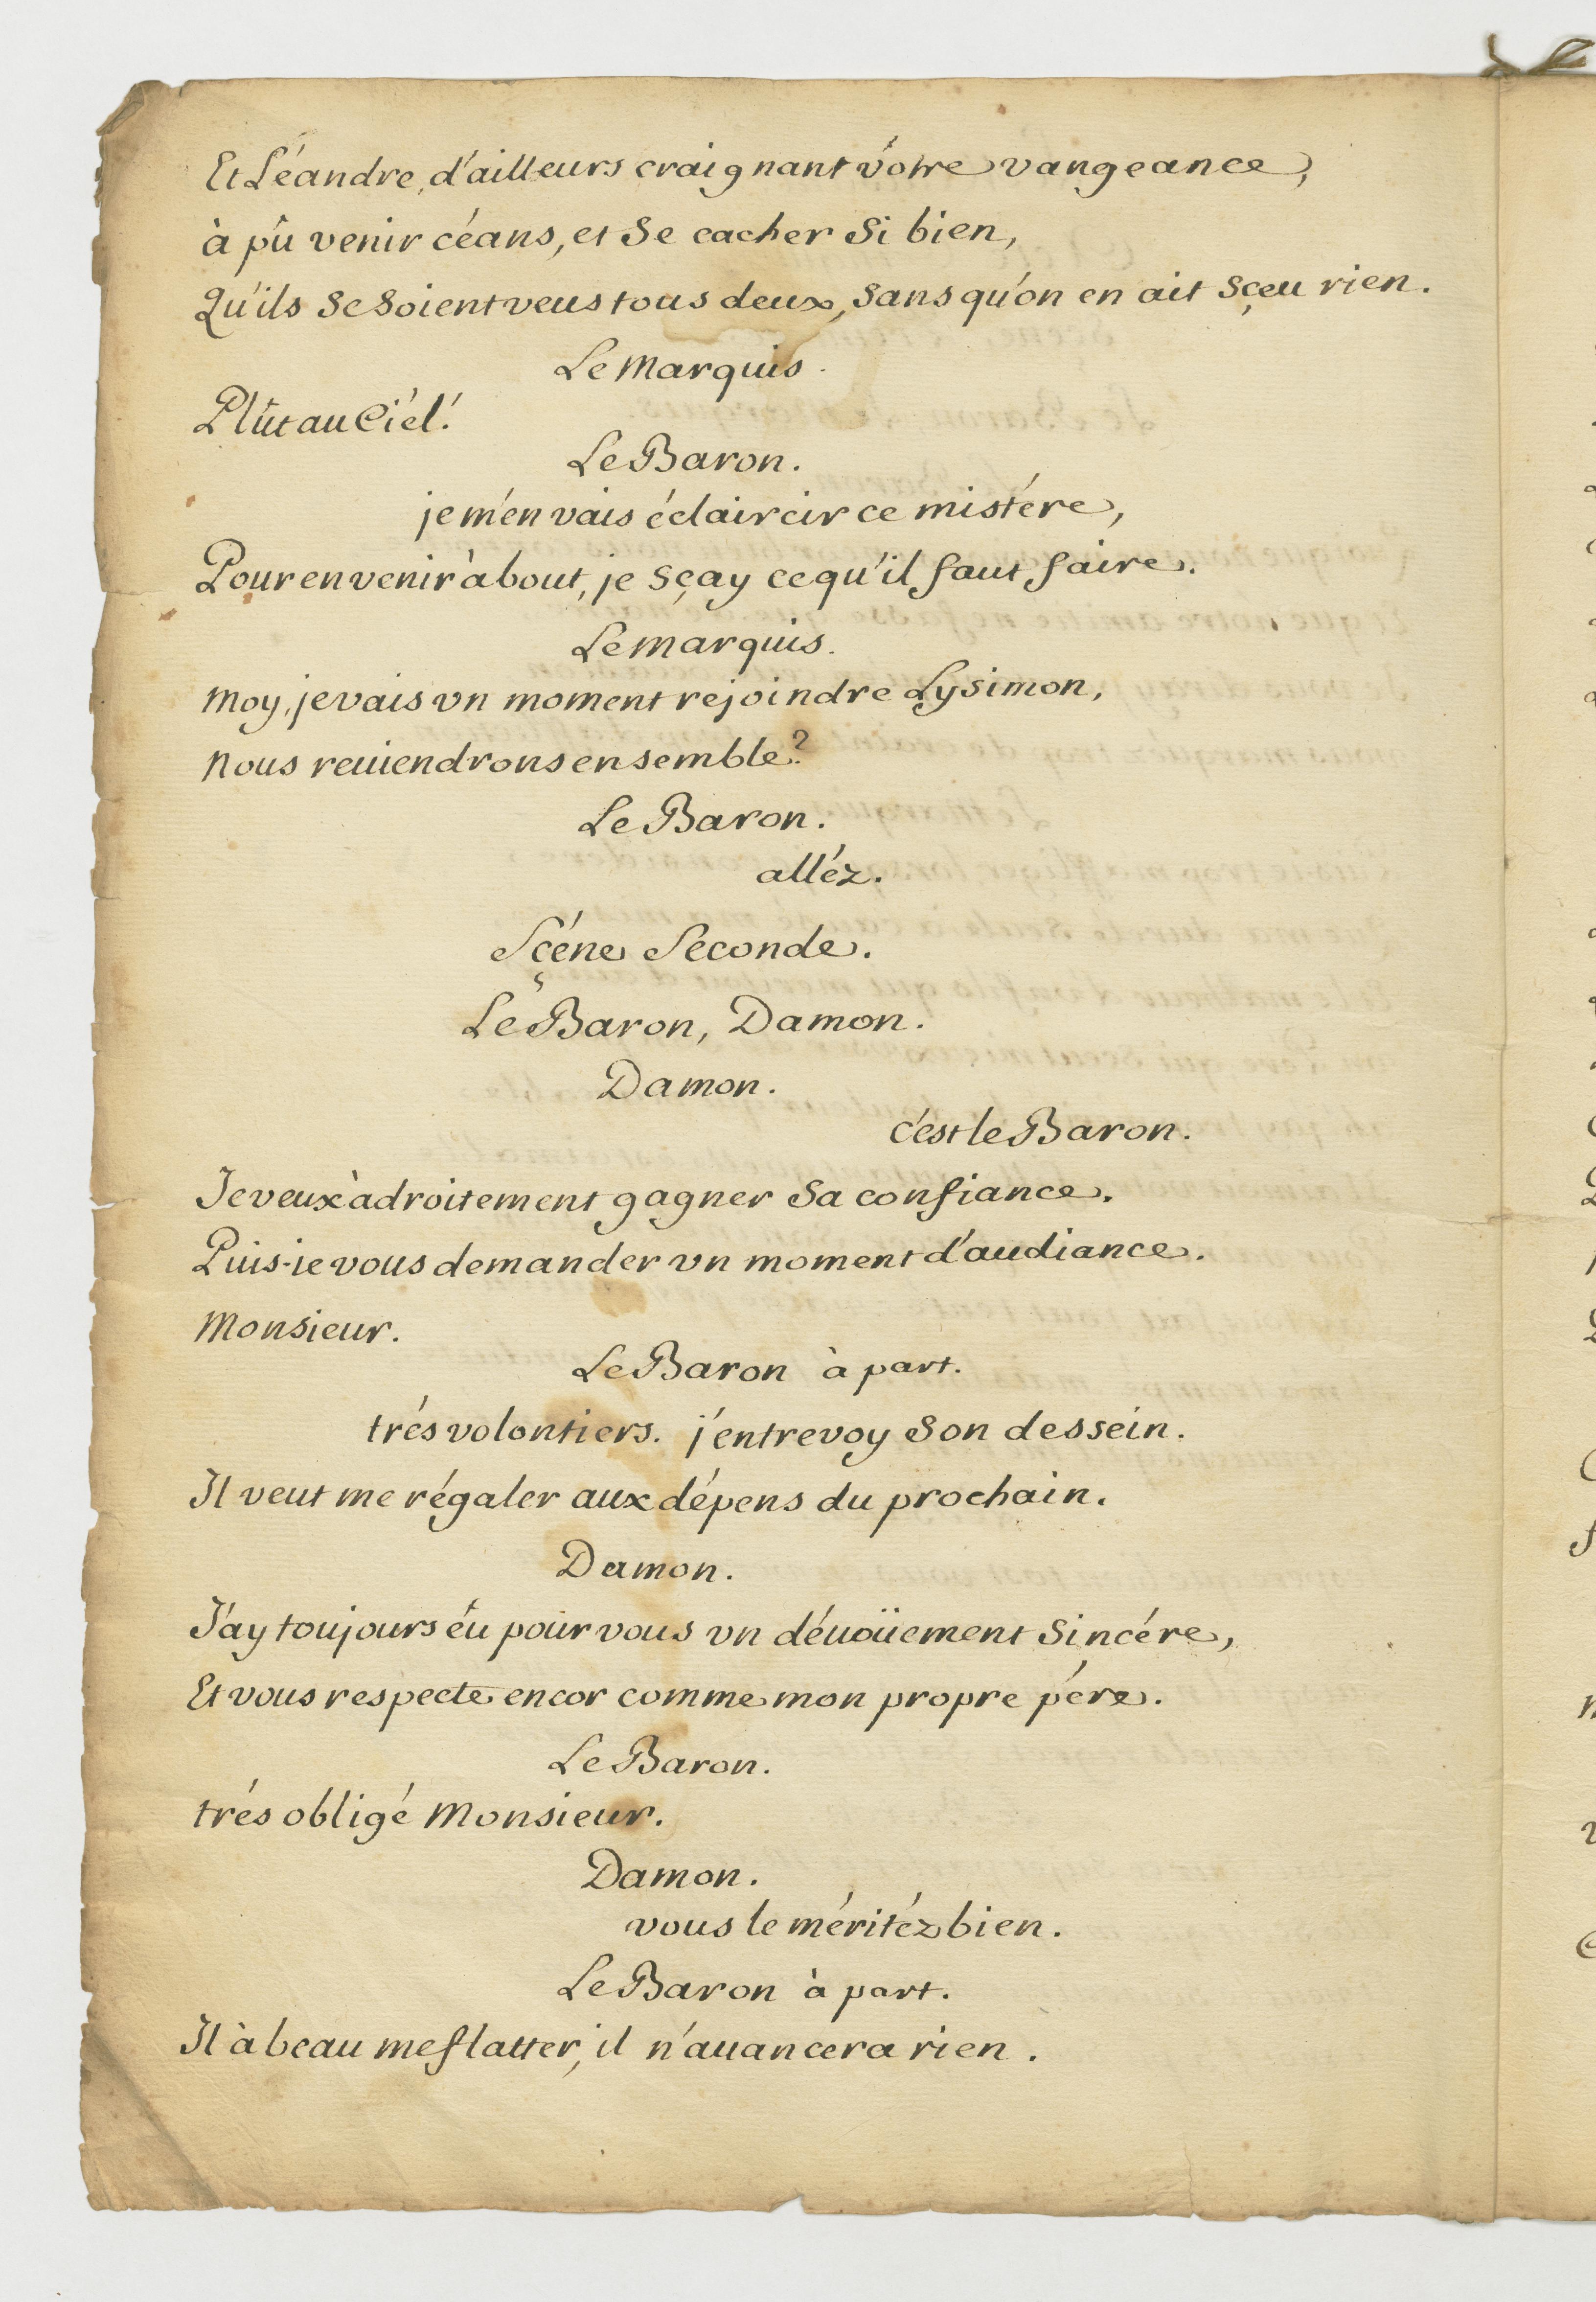 Et Léandre, d'ailleurs craignant vôtre vangeance,
à pû venir céans, et se cacher si bien,
Qu'ils se soient veus tous deux, sans qu'on en ait sçeu rien.
Le Marquis.
Plût au Ciél!
Le Baron.
je m'en vais éclaircir ce mistére,
Pour en venir à bout, je sçay ce qu'il faut faire.
Le marquis.
Moy, je vais vn moment rejoindre Lysimon,
Nous reuiendrons ensemble?
Le Baron.
alléz.
Sçéne Seconde.
Le Baron, Damon.
Damon.
c'est le Baron.
Je veux àdroitement gagner sa confiance.
Puis-ie vous demander vn moment d'audiance.
Monsieur.
Le Baron à part.
trés volontiers. j'entrevoy son dessein.
Il veut me régaler aux dépens du prochain.
Damon.
J'ay toujours éu pour vous vn déuoüement sincére,
Et vous respecte encor comme mon propre pére.
Le Baron.
trés obligé Monsieur.
Damon.
vous le méritéz bien.
Le Baron à part.
Il à beau me flatter, il n'auancera rien.